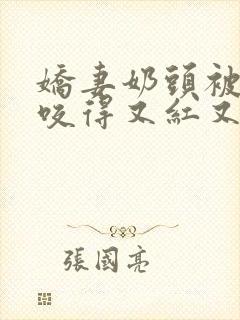 嬌妻奶頭被
咬得又紅又
張國亮